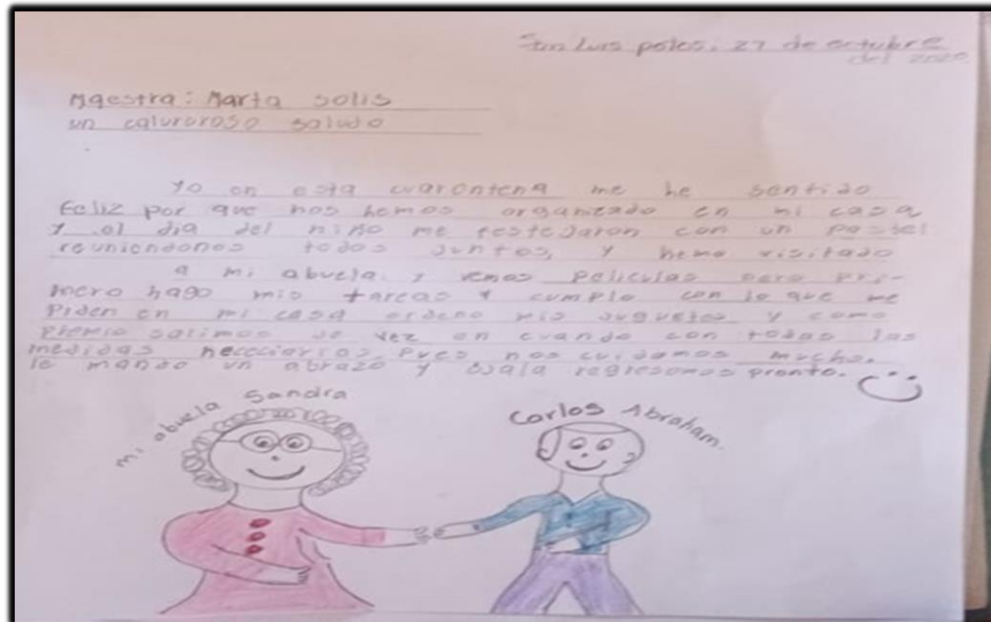 San Luis potos. 27 de octubre
del 2020
Maestra: Marta solis
un calururoso saludo
Yo en esta cuarentena me he sentido
feliz por que nos hemos organizado en mi casa
y el dia del niño me festejaron con un pastel
reuniendonos todos juntos, y hemo visitado
a mi abuela. y vemos peliculas pero pri-
mero hago mis tareas y cumplo con lo que me
piden en mi casa ordeno mis juguetes y como
premio salimos de vez en cuando con todas las
medidas nececiarias. pues nos cuidamos mucho.
le mando un abrazo y ojala regresemos pronto.
mi abuela Sandra
Carlos Abraham.